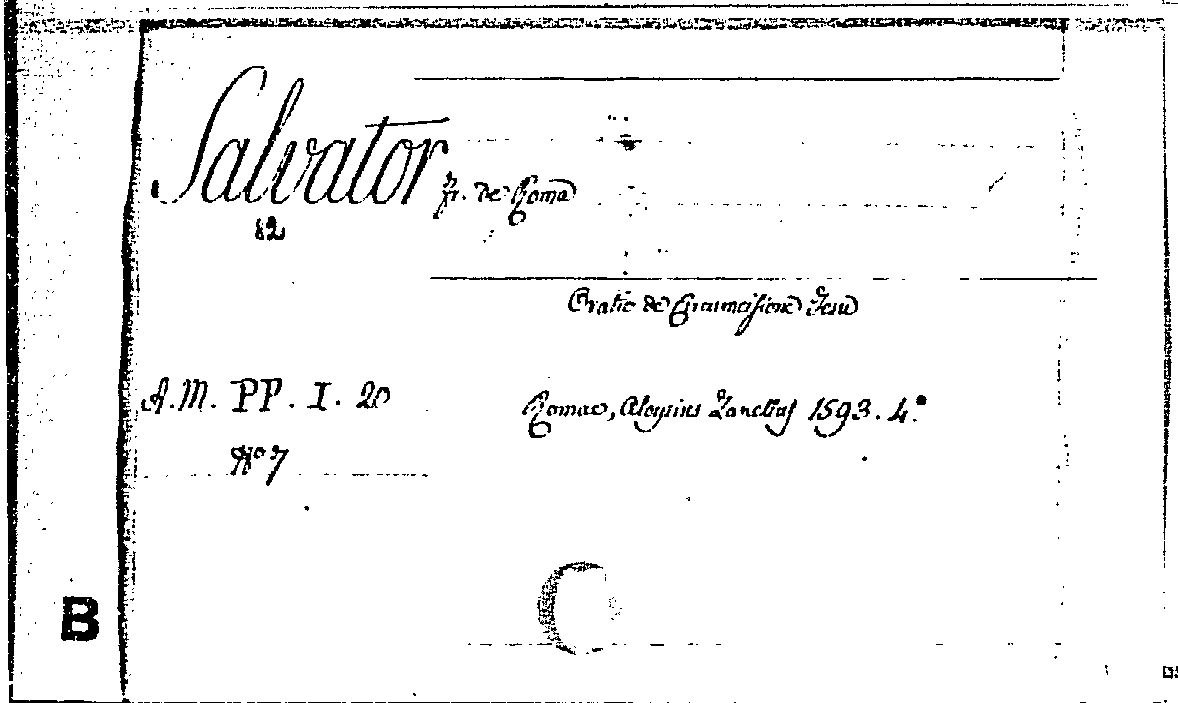 Salvator Fr. de Roma
12
Oratio de Circumcisione Jesu
A.M. PP. I. 20
Romae, Aloysius Zanettus 1593. 4.°
N.° 7
B